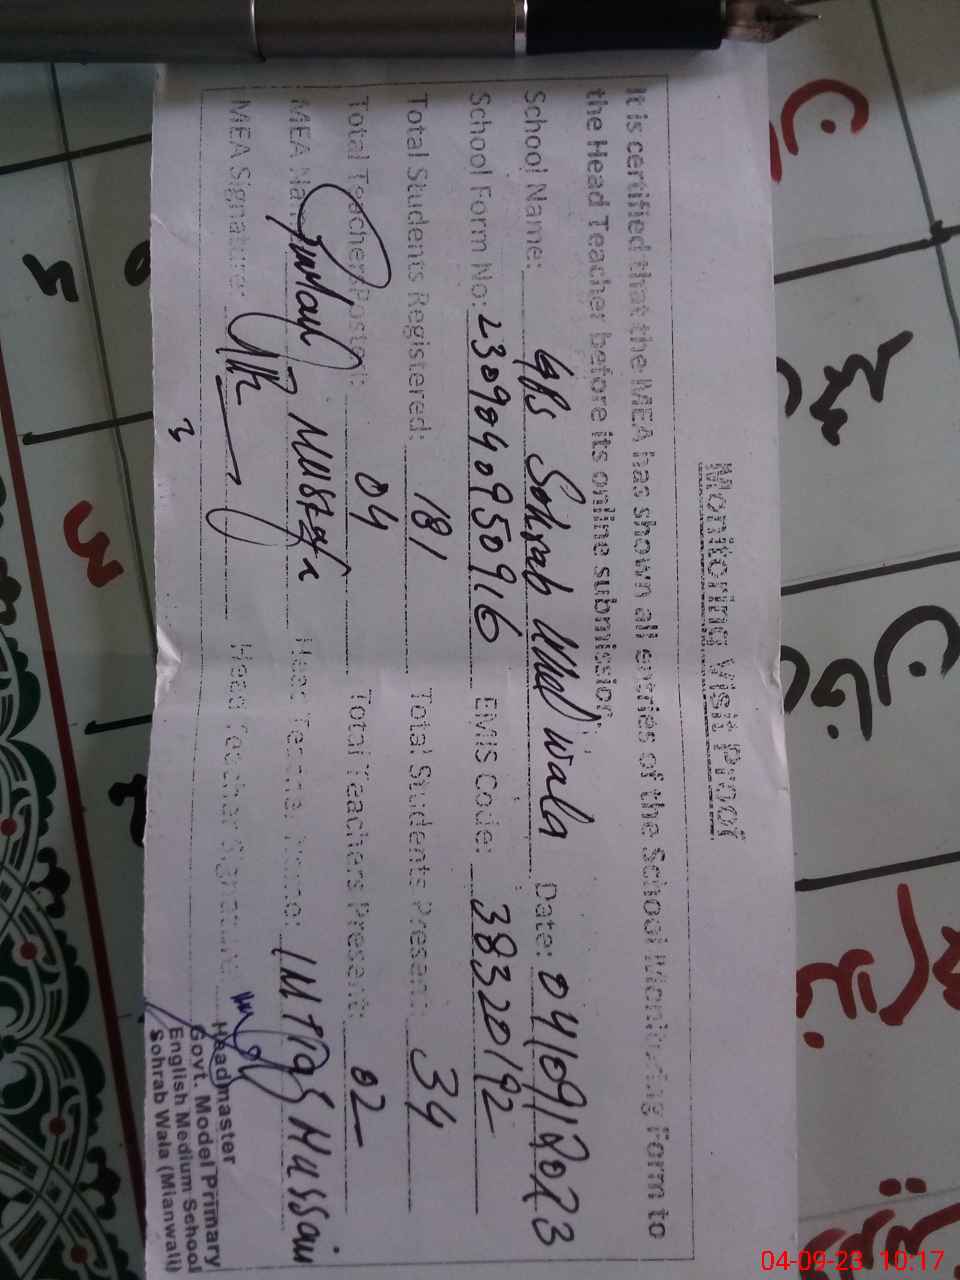 Monitoring Visit Proof
It is certified that the MEA has shown all entries of the School Monitoring Form to
the Head Teacher before its online submission.
School Name: GPS Sohrab Wala Date: 04/09/2023
School Form No: 2309040950916 EMIS Code: 38320192
Total Students Registered: 181 Total Students Present: 34
Total Teachers Posted: 04 Total Teachers Present: 02
MEA Name: Ghulam Mustafa Head Teacher Name: Imtiaz Hussain
MEA Signature: Head Teacher Signature:
Headmaster
Govt. Model Primary
English Medium School
Sohrab Wala (Mianwali)
04-09-23 10:17